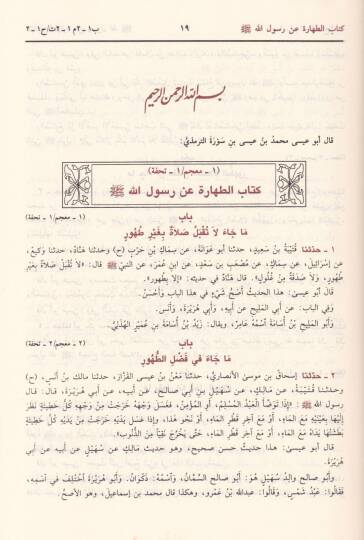 كتاب الطهارة عن رسول الله ﷺ
١٩
ب١-٢م١-٢ت/ح١-٢
بسم الله الرحمن الرحيم
قال أبو عيسى محمدُ بنُ عيسى بنِ سَوْرَةَ الترمذيُّ:
(١ - معجم/١ - تحفة)
كتاب الطهارة عن رسول الله ﷺ
باب
(١ - معجم/١ - تحفة)
مَا جَاءَ لَا تُقْبَلُ صَلَاةٌ بِغَيْرِ طُهُورٍ
١ - حَدَّثَنَا قُتَيْبَةُ بْنُ سَعِيدٍ، حدثنا أبو عَوَانَةَ، عن سِمَاكِ بْنِ حَرْبٍ (ح) وحدثنا هَنَّادٌ، حدثنا وَكِيعٌ،
عن إسْرَائِيلَ، عن سِمَاكٍ، عن مُصْعَبِ بن سَعْدٍ، عن ابنِ عُمَرَ، عن النبيِّ ﷺ قال: «لا تُقْبَلُ صَلَاةٌ بغَيْرِ
طُهُورٍ، ولا صَدَقَةٌ مِنْ غُلُولٍ». قال هَنَّادٌ في حديثه: «إلَّا بطُهور».
قال أبو عيسى: هذا الحديثُ أَصَحُّ شَيْءٍ في هذا الباب وَأَحْسَنُ.
وفي الباب: عن أبي المَلِيحِ عن أبيهِ، وأبي هُرَيْرَةَ، وأنَسٍ.
وأبو المَلِيحِ بن أُسَامَةَ اسْمُهُ عَامِرٌ، ويقال: زَيْدُ بْنُ أُسَامَةَ بنِ عُمَيْرٍ الهُذَلِيُّ.
باب
(٢ - معجم/٢ - تحفة)
مَا جَاءَ فِي فَضْلِ الطُّهُورِ
٢ - حَدَّثَنَا إِسْحَاقُ بن موسى الأنصاريُّ، حدثنا مَعْنُ بنُ عيسى القَزَّازُ، حدثنا مالك بنُ أنَسٍ، (ح)
وحدثنا قُتَيْبَةُ، عن مَالِكٍ، عن سُهَيْلِ بْنِ أبي صالحٍ، عن أبيهِ، عن أبي هُرَيْرَةَ، قال: قال
رسول الله ﷺ: «إذَا تَوَضَّأَ الْعَبْدُ المُسْلِمُ، أو المُؤْمِنُ، فَغَسَلَ وَجْهَهُ خَرَجَتْ مِنْ وَجْهِهِ كُلُّ خَطِيئَةٍ نَظَرَ
إِلَيْهَا بِعَيْنَيْهِ مَعَ المَاءِ، أَوْ مَعَ آخِرِ قَطْرِ المَاءِ، أَوْ نَحْوَ هذَا، وَإِذَا غَسَلَ يَدَيْهِ خَرَجَتْ مِنْ يَدَيْهِ كُلُّ خَطِيئَةٍ
بَطَشَتْهَا يَدَاهُ مَعَ المَاءِ، أَوْ مَعَ آخِرِ قَطْرِ المَاءِ، حَتَّى يَخْرُجَ نَقِيًّا مِنَ الذُّنُوبِ».
قال أبو عيسى: هذا حديثٌ حسن صحيح، وهو حديث مالك عن سُهَيْلٍ عن أبيه عن أبي
هُرَيْرَةَ.
وأبو صالحٍ والِدُ سُهَيْلٍ هُوَ: أبو صالحٍ السَّمَّانُ، وَاسْمُهُ: ذَكْوَانُ. وأَبُو هُرَيْرَةَ اخْتُلِفَ في اسْمِهِ،
فَقَالُوا: عَبْدُ شَمْسٍ، وَقَالُوا: عبدالله بْنُ عَمْرٍو، وهكذا قال محمد بن إسماعيل، وهو الأصحُّ.